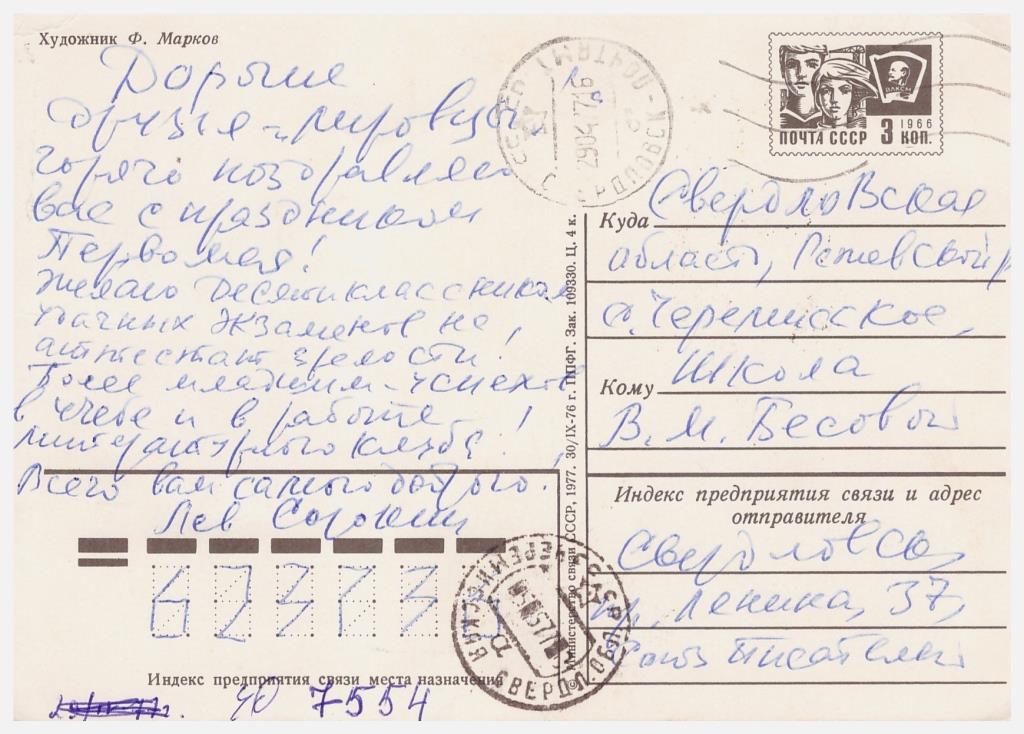 Художник Ф. Марков
Дорогие
друзья-мировцы,
горячо поздравляю
вас с праздником
Первомая!
Желаю десятиклассникам
удачных экзаменов на
аттестат зрелости!
Более младшим - успехов
в учебе и в работе
литературного клуба!
Всего вам самого доброго.
Лев Сорокин
Индекс предприятия связи места назначения
ЧО 7554
Министерство связи СССР, 1977. 30/IX-76 г. ППФГ. Зак. 109330. Ц. 4 к.
ВЛКСМ
1966
ПОЧТА СССР 3 КОП.
Куда Свердловская
область, Режевской р
с. Черемисское,
школа
Кому
В. М. Бесовой
Индекс предприятия связи и адрес
отправителя
Свердловск,
Ленина, 37,
Союз писателей